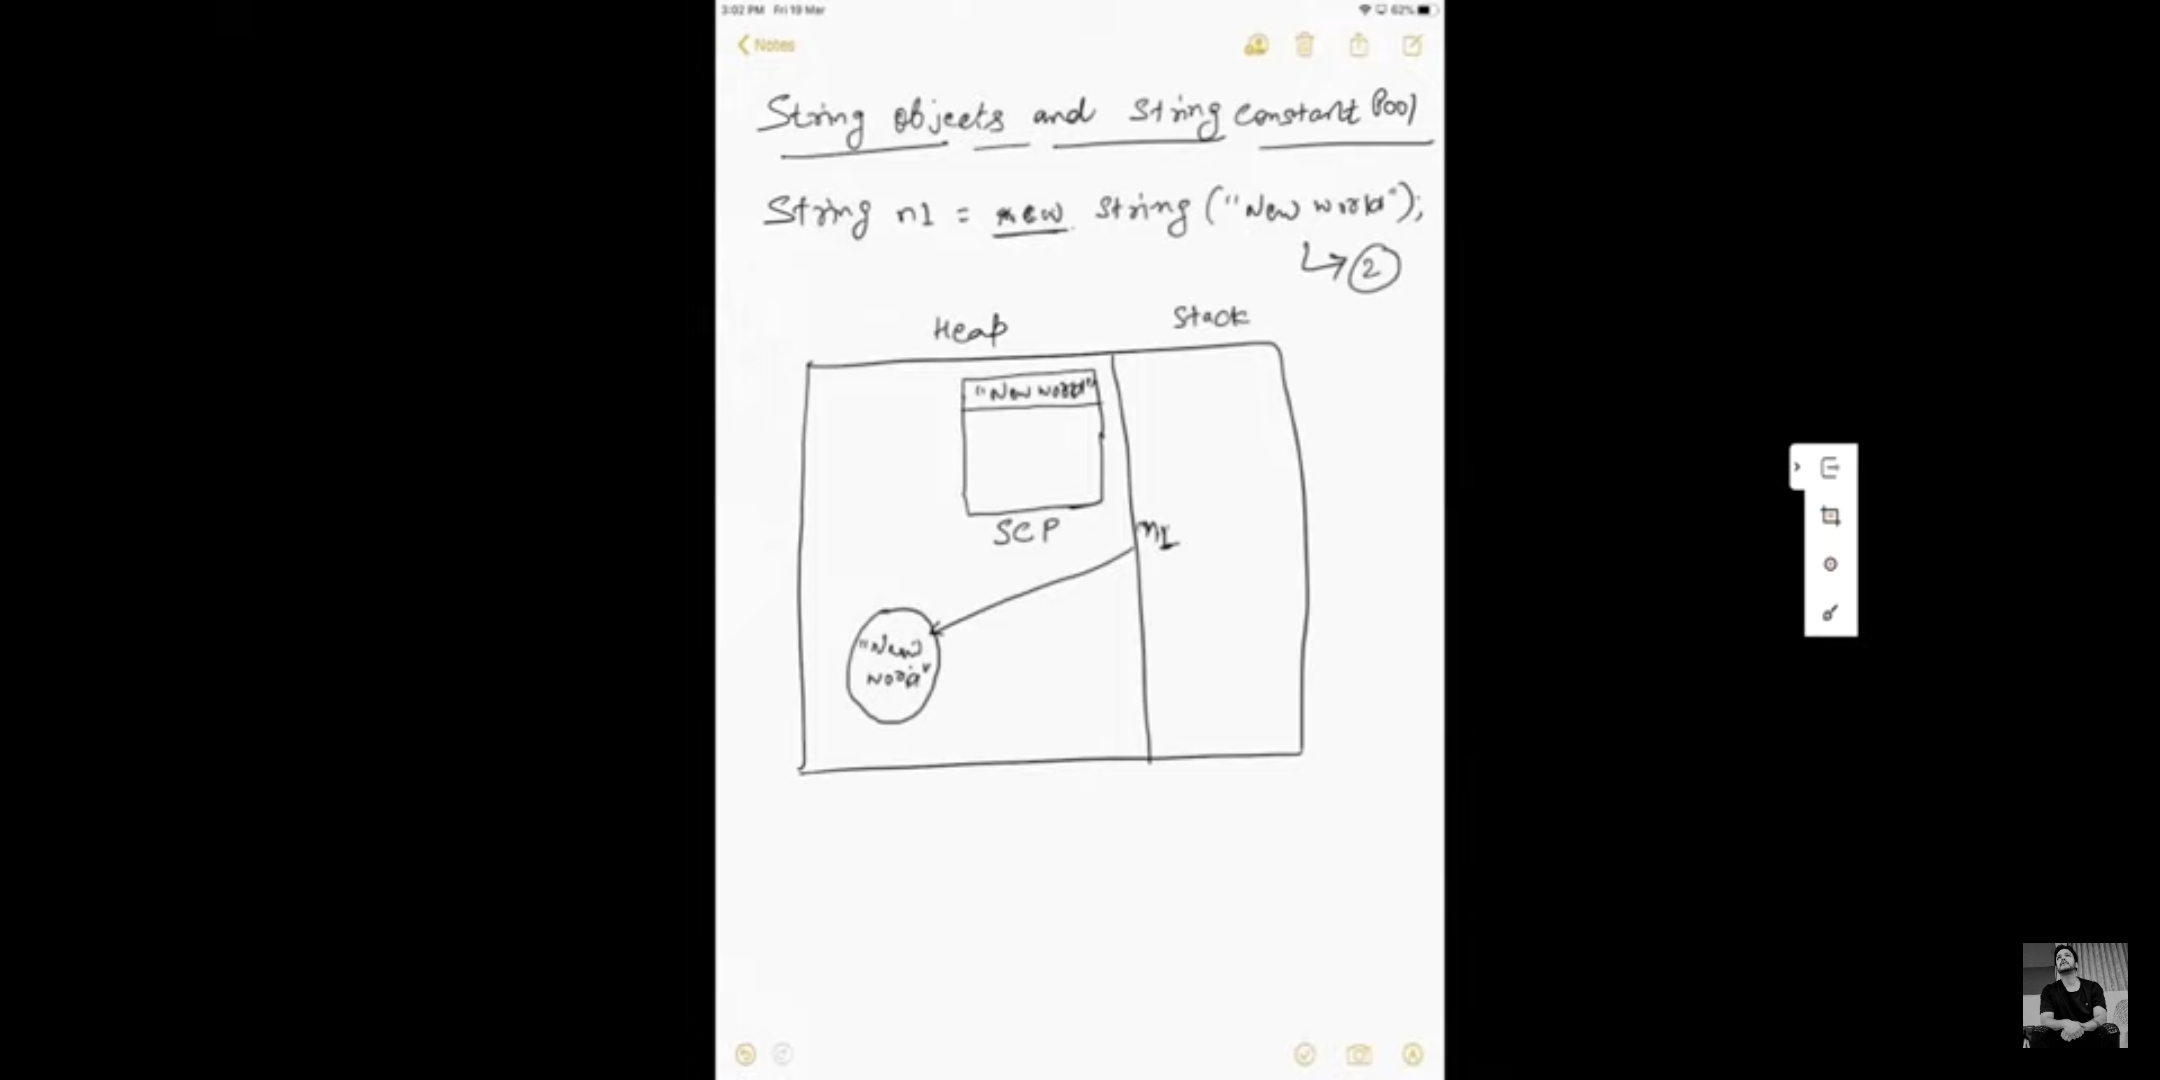 3:02 PM Fri 19 Mar
62%
Notes
String objects and string constant Pool
String n1 = new string ("New world");
2
Heap
Stack
"New world"
SCP
n1
"New
world"